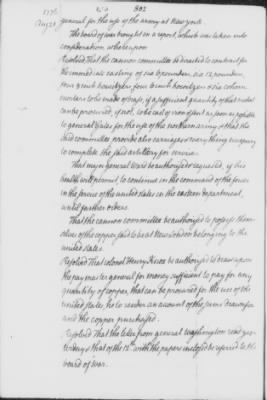 1776
Aug 21
302
general for the use of the army at New york.
The board of war brought in a report, which was taken into
consideration whereupon
Resolved That the cannon committee be directed to contract for
the immediate casting of six 6 pounders, six 12 pounders,
four 8 inch howitzers four 5½ inch howitzers & six cohorn
mortars to be made of brass, if a sufficient quantity of that metal
can be procured, if not, to be cast of iron & sent as soon as possible
to general Gates for the use of the northern army & that the
said committee provide also carriages & every thing necessary
to complete the said artillery for service.
That major general Ward be authorised & requested, if his
health will permit, to continue in the command of the forces
in the service of the united states in the eastern department,
until further orders.
That the cannon committee be authorised to possess them
selves of the copper said to be at New London belonging to the
united states.
Resolved That colonel Henry Knox be authorised to draw upon
the paymaster general for money sufficient to pay for any
quantity of copper, that can be procured for the use of the
united states, he to render an account of the sums drawn for
and the copper purchased.
Resolved That the letter from general Washington read yes-
terday & that of the 12th with the papers inclosed be referred to the
board of war.